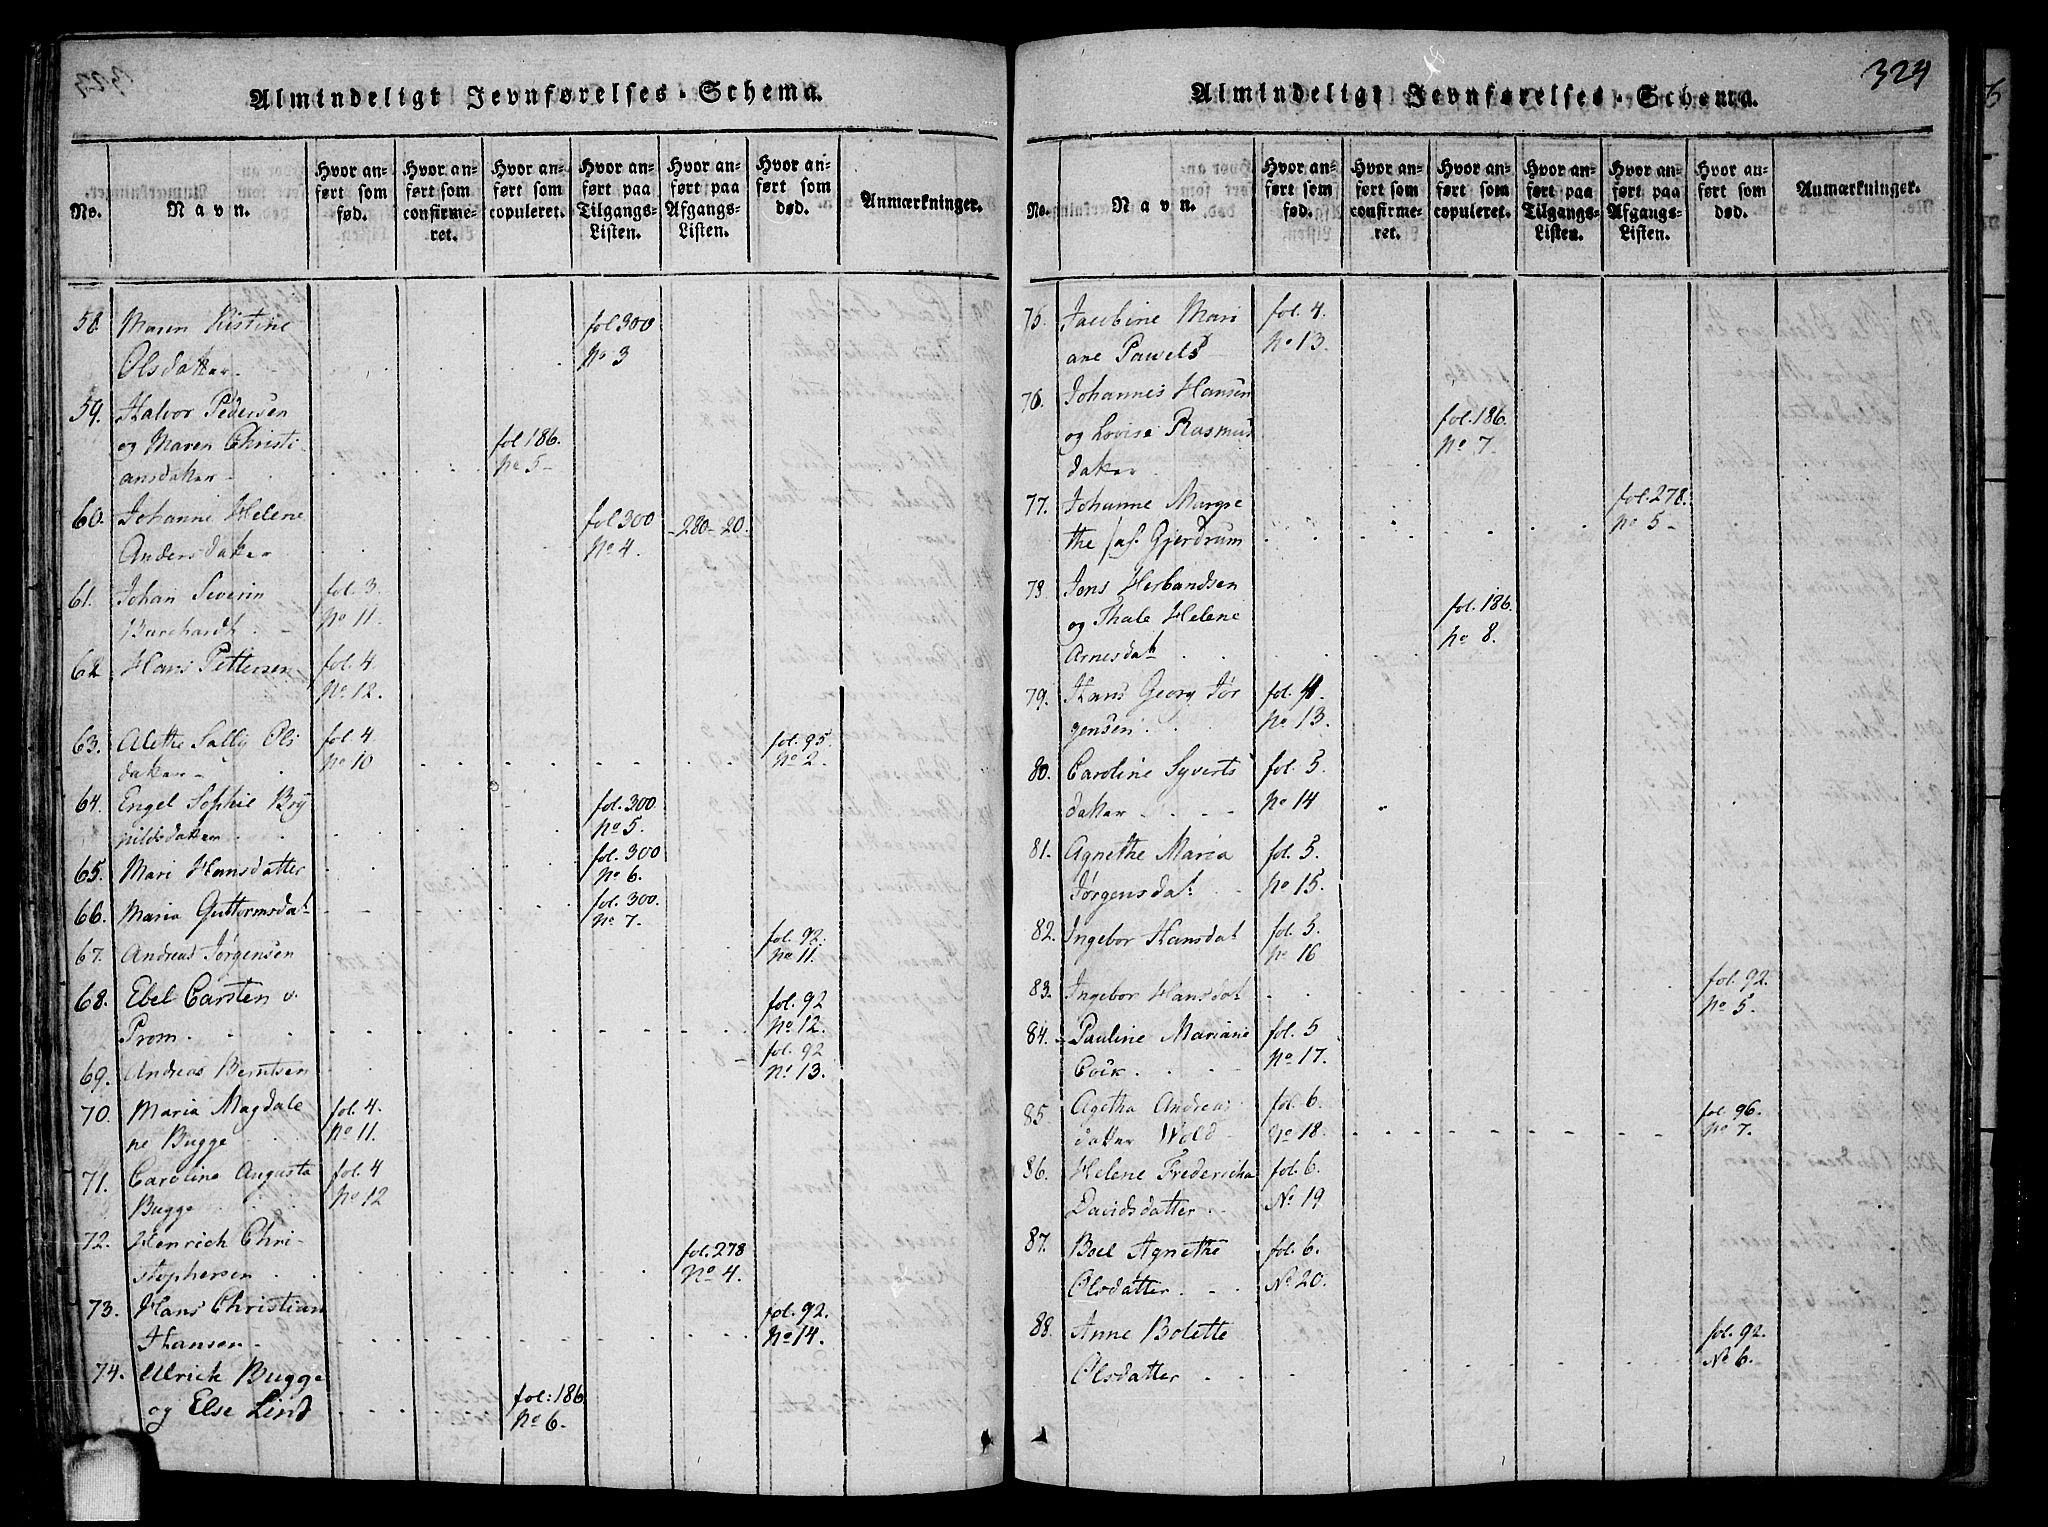 Almindeligt Jevnførelses-Schema.
No.
Navn.
Hvor an-
ført som
fød.
Hvor an-
ført som
confirme-
ret.
Hvor an-
ført som
copuleret.
Hvor an-
ført paa
Tilgangs-
Listen.
Hvor an-
ført paa
Afgangs-
Listen.
Hvor an-
ført som
død.
Anmærkninger.
58. Maren Kistine fol 300
Olsdatter No 3
59. Halvor Pedersen
og Maren Christi- fol 186.
ansdatter No 5
60. Johanne Helene fol 300 280-20.
Andersdatter No 4.
61. Johan Severin fol. 3.
Burchardt No 11.
62 Hans Pettersen fol. 4
No 12.
63. Alethe Sally Ols fol. 4 fol. 95.
datter No 10 No 2.
64. Engel Sophie Bry fol. 300
nildsdatter No 5.
65. Mari Hansdatter fol. 300
No 6.
66. Maria Guttormsdat fol. 300.
No 7.
67. Andreas Jørgensen fol. 92.
No 11.
68. Ebel Carsten v. fol. 92
Prom. No 12.
69. Andreas Berntsen fol. 92
No 13.
70. Maria Magdale fol. 4.
ne Bugge No 11.
71. Caroline Augusta fol. 4
Bugge No 12
72. Henrich Chri- fol. 278
stophersen No 4.
73. Hans Christian fol. 92.
Hansen No 14.
74. Ulrich Bugge fol: 186
og Else Lind No 6.
324
Almindeligt Jevnførelses-Schema.
No.
Navn.
Hvor an-
ført som
fød.
Hvor an-
ført som
confirme-
ret.
Hvor an-
ført som
copuleret.
Hvor an-
ført paa
Tilgangs-
Listen.
Hvor an-
ført paa
Afgangs-
Listen.
Hvor an-
ført som
død.
Anmærkninger.
75. Jacobine Mari fol. 4.
ane Pawels No 13.
76. Johannes Hansen fol. 186.
og Lovise Rasmus No 7.
datter
77. Johanne Margre fol. 278.
the /af Gjerdrum No 5
78. Jens Herbandsen fol. 186.
og Thale Helene No 8.
Arnesdat
79. Hans Georg Jør fol. 4.
gensen No 13.
80. Caroline Syverts fol. 5.
datter No 14
81. Agnethe Maria fol. 5.
Jørgensdat No 15.
82. Ingebor Hansdat fol. 5.
No 16
83. Ingebor Hansdat fol. 92.
No 5.
84. Pauline Mariane fol. 5
Cock. No 17.
85 Agetha Andreas fol. 6. fol. 96.
datter Wold No 18. No 7.
86. Helene Fredericha fol. 6.
Davidsdatter No 19
87. Boel Agnethe fol. 6.
Olsdatter No 20.
88. Anne Bolette fol. 92.
Olsdatter No 6.